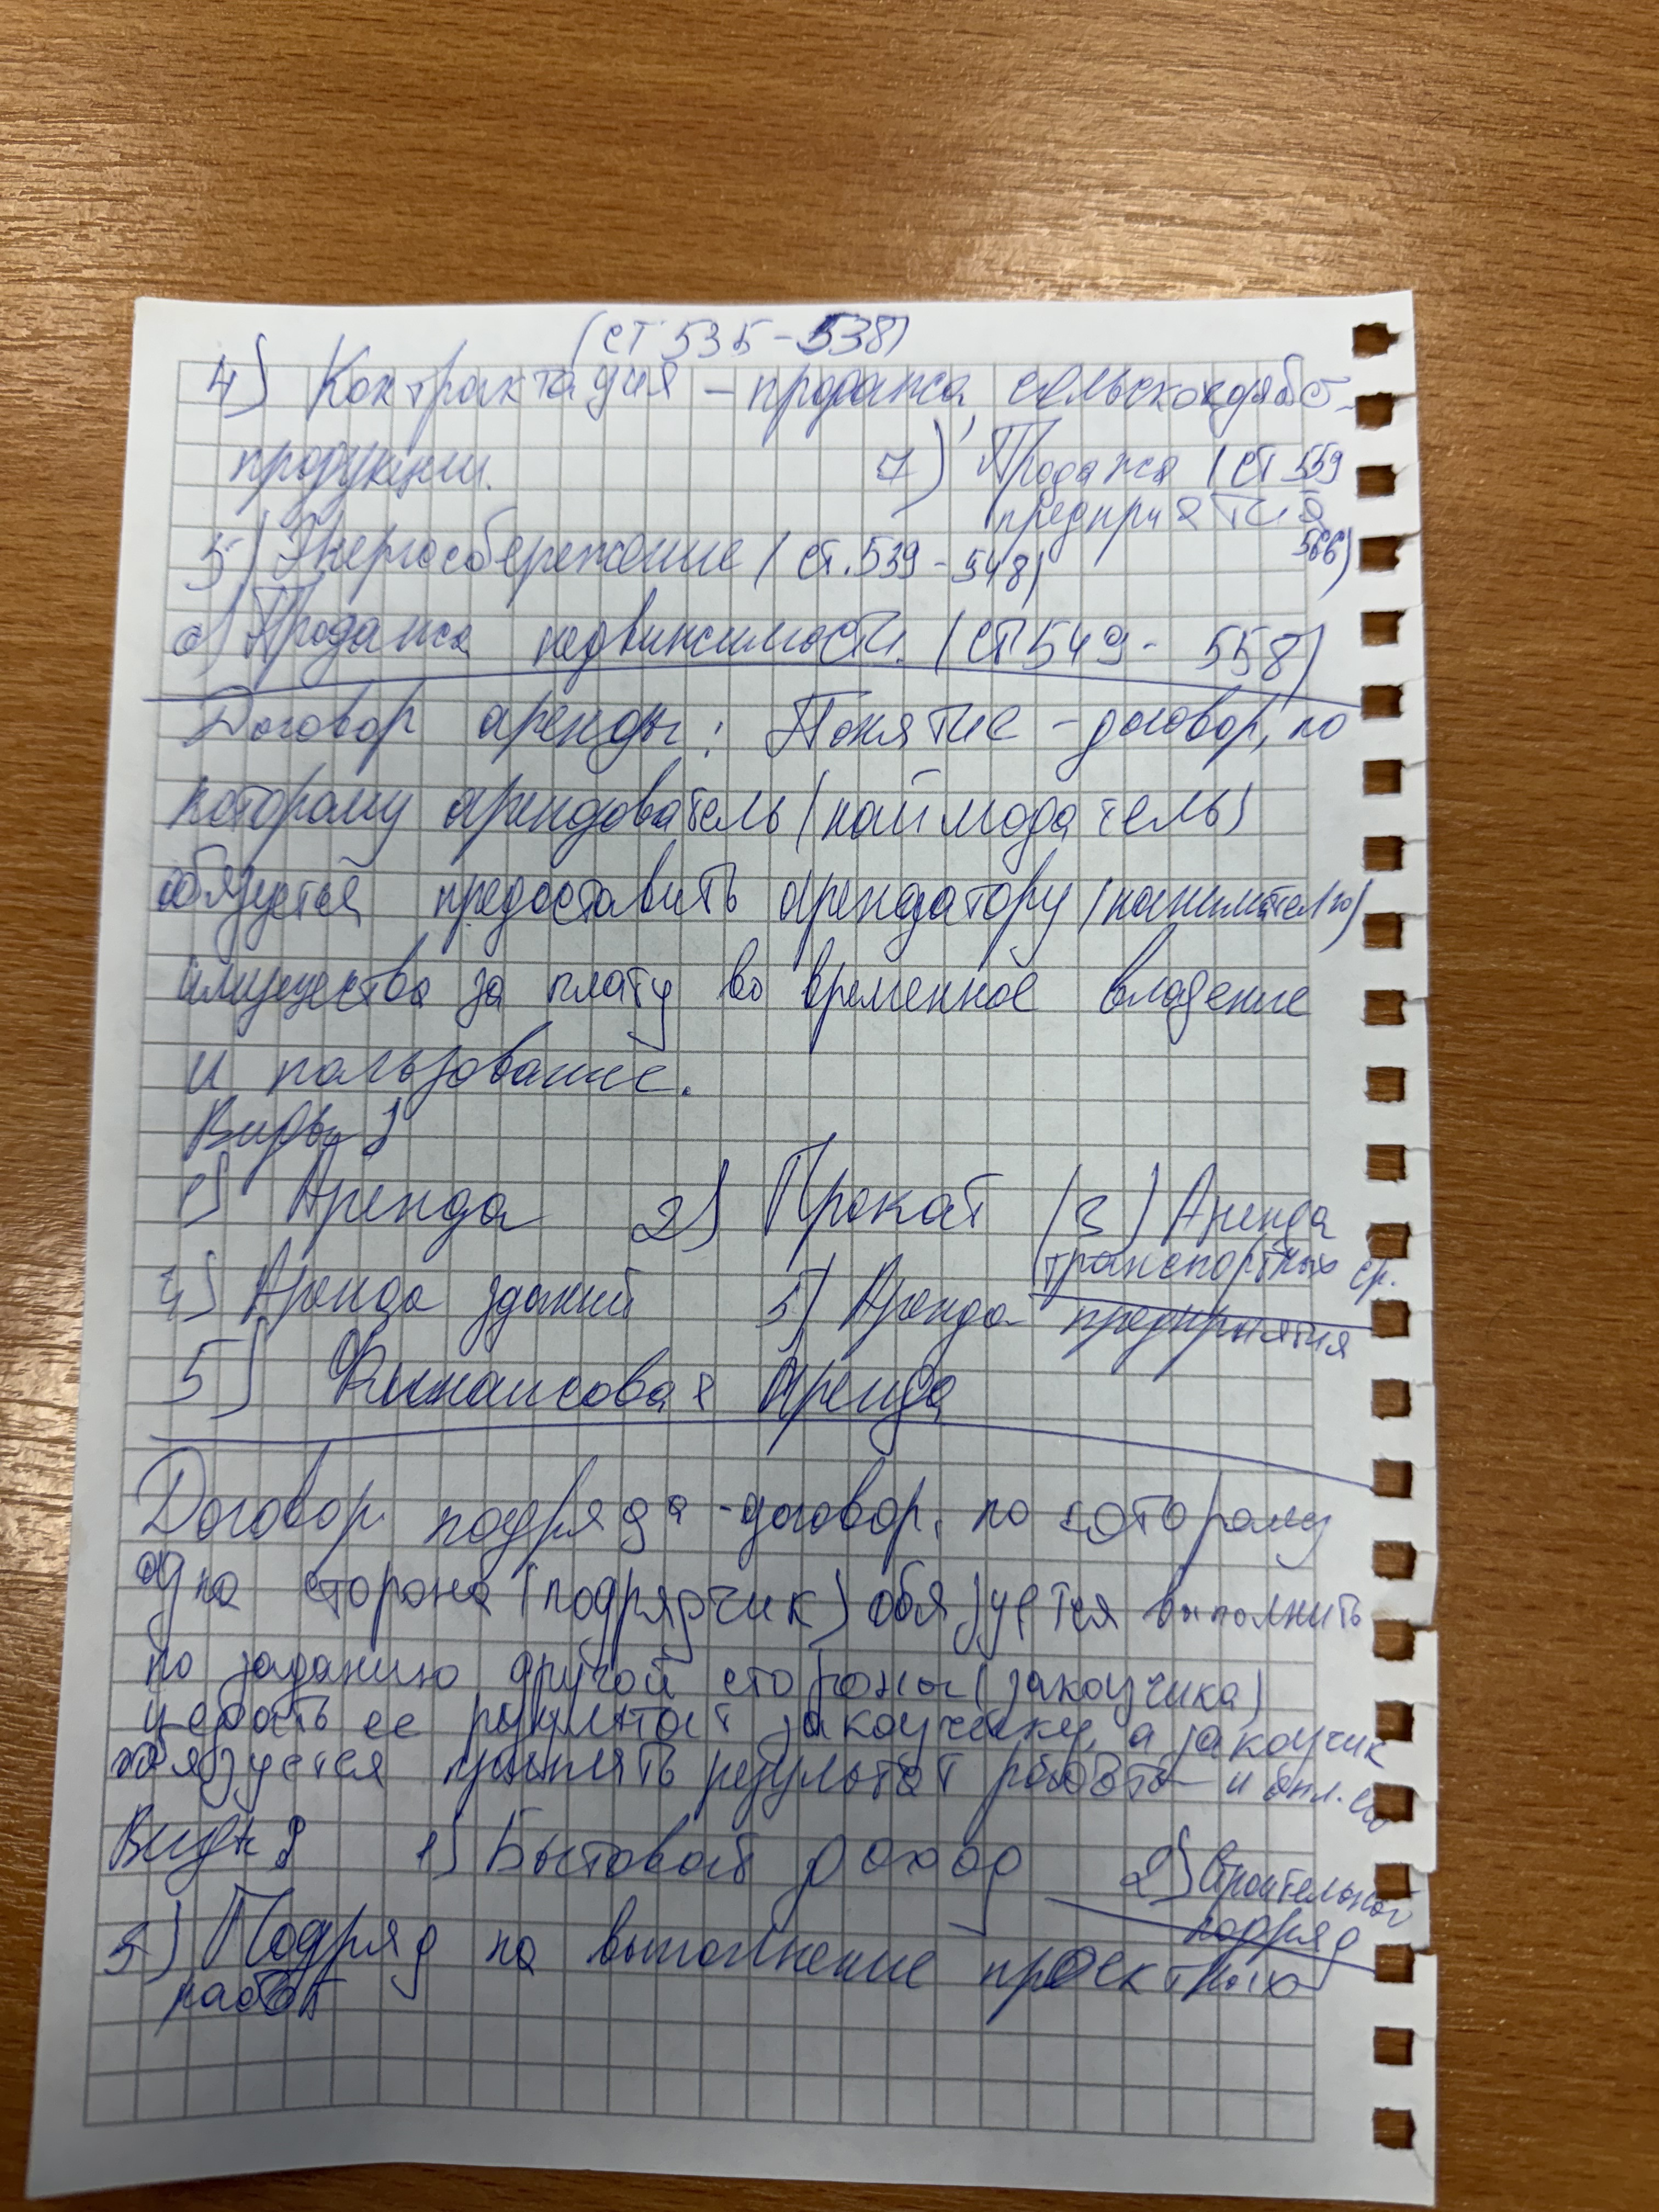 (ст 535-538)
4) Контрактация - продажа сельскохозяйст
продукции.
7) Продажа (ст 559
предприятий
566)
5) Энергосбережение (ст.539-548)
6) Продажа недвижимости. (ст 549- 558)
Договор аренды: Понятие - договор, по
которому арендователь (наймодатель)
обязуется предоставить арендатору (нанимателю)
имущество за плату во временное владение
и пользование.
Виды:
1) Аренда 2) Прокат (3) Аренда
транспортных ср.
4) Аренда зданий 5) Аренда предприятия
5) Финансовая Аренда
Договор подряда -договор, по которому
одна сторона (подрядчик) обязуется выполнить
по заданию другой стороны (заказчика)
ее результат заказчику, а заказчик
обязуется принять результат работы и опл. его
Виды: 1) Бытовой доход 2) Строительной
подряд
3) Подряд на выполнение проектных
работ